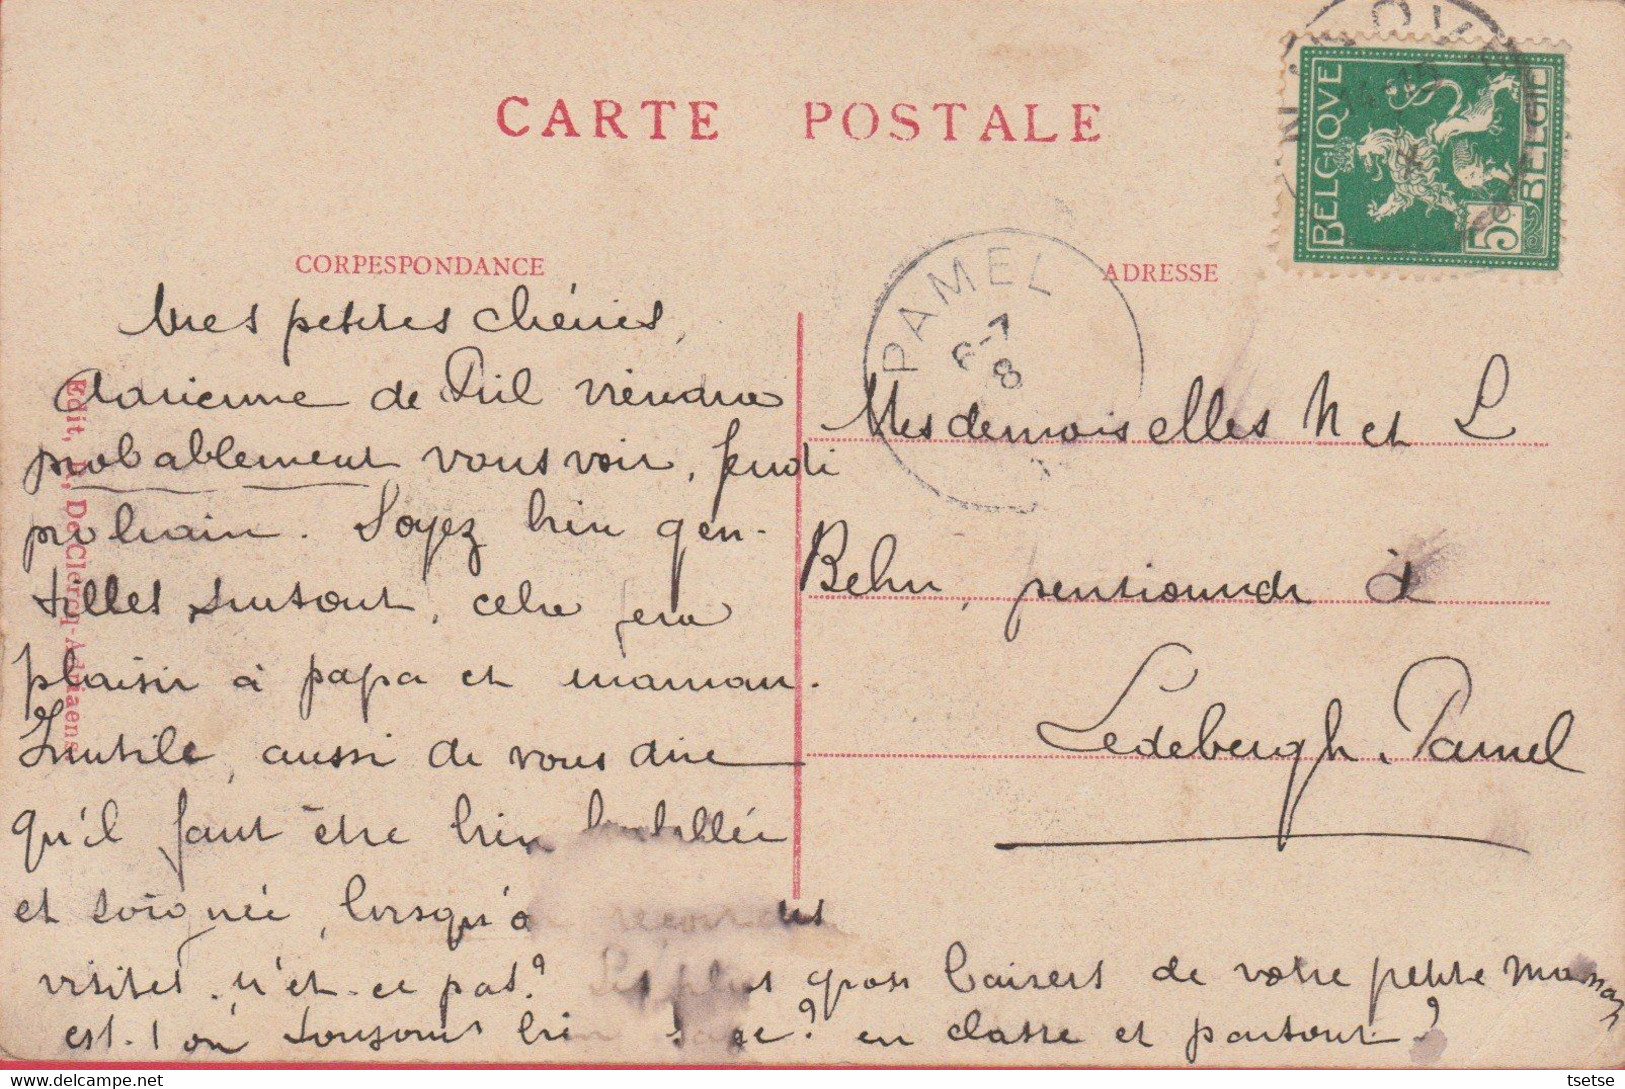 CARTE POSTALE
CORPESPONDANCE
ADRESSE
BELGIQUE
BELGIË
5c
NINOVE
PAMEL
6-7
8
Edit, D. De Clercq-Adriaens
Mes petites chéries,
Adrienne de Pril viendra
probablement vous voir, jeudi
prochain. Soyez bien gen-
tilles surtout, cela fera
plaisir à papa et maman.
Inutile, aussi de vous dire
qu'il faut être bien
et soignée, lorsqu'on
visites. n'est-ce pas? Les plus gros baisers de votre petite Maman
est-on toujours bien sage? en classe et partout?
Mesdemoiselles M et L
Behn, pensionnat à
Ledebergh. Pamel
tsetse